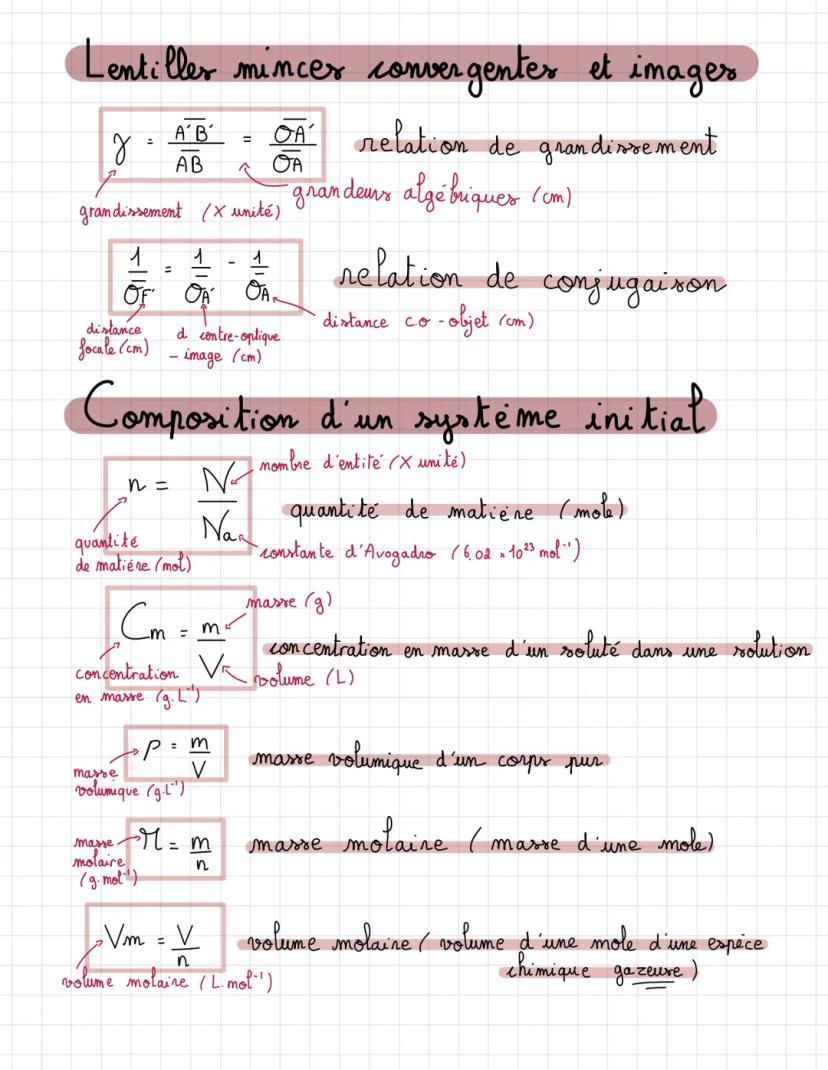 Lentilles minces convergentes et images
γ = A'B' / AB = OA' / OA relation de grandissement
grandissement (X unité) grandeurs algébriques (cm)
1/OF' = 1/OA' - 1/OA relation de conjugaison
distance focale (cm)
d centre-optique - image (cm)
distance c.o - objet (cm)
Composition d'un système initial
n = N / Na quantité de matière (mole)
nombre d'entité (X unité)
quantité de matière (mol)
constante d'Avogadro (6,02 × 10²³ mol⁻¹)
Cm = m / V concentration en masse d'un soluté dans une solution
masse (g)
concentration en masse (g.L⁻¹)
volume (L)
ρ = m / V masse volumique d'un corps pur
masse volumique (g.L⁻¹)
M = m / n masse molaire (masse d'une mole)
masse molaire (g.mol⁻¹)
Vm = V / n volume molaire (volume d'une mole d'une espèce
chimique gazeuse)
volume molaire (L.mol⁻¹)